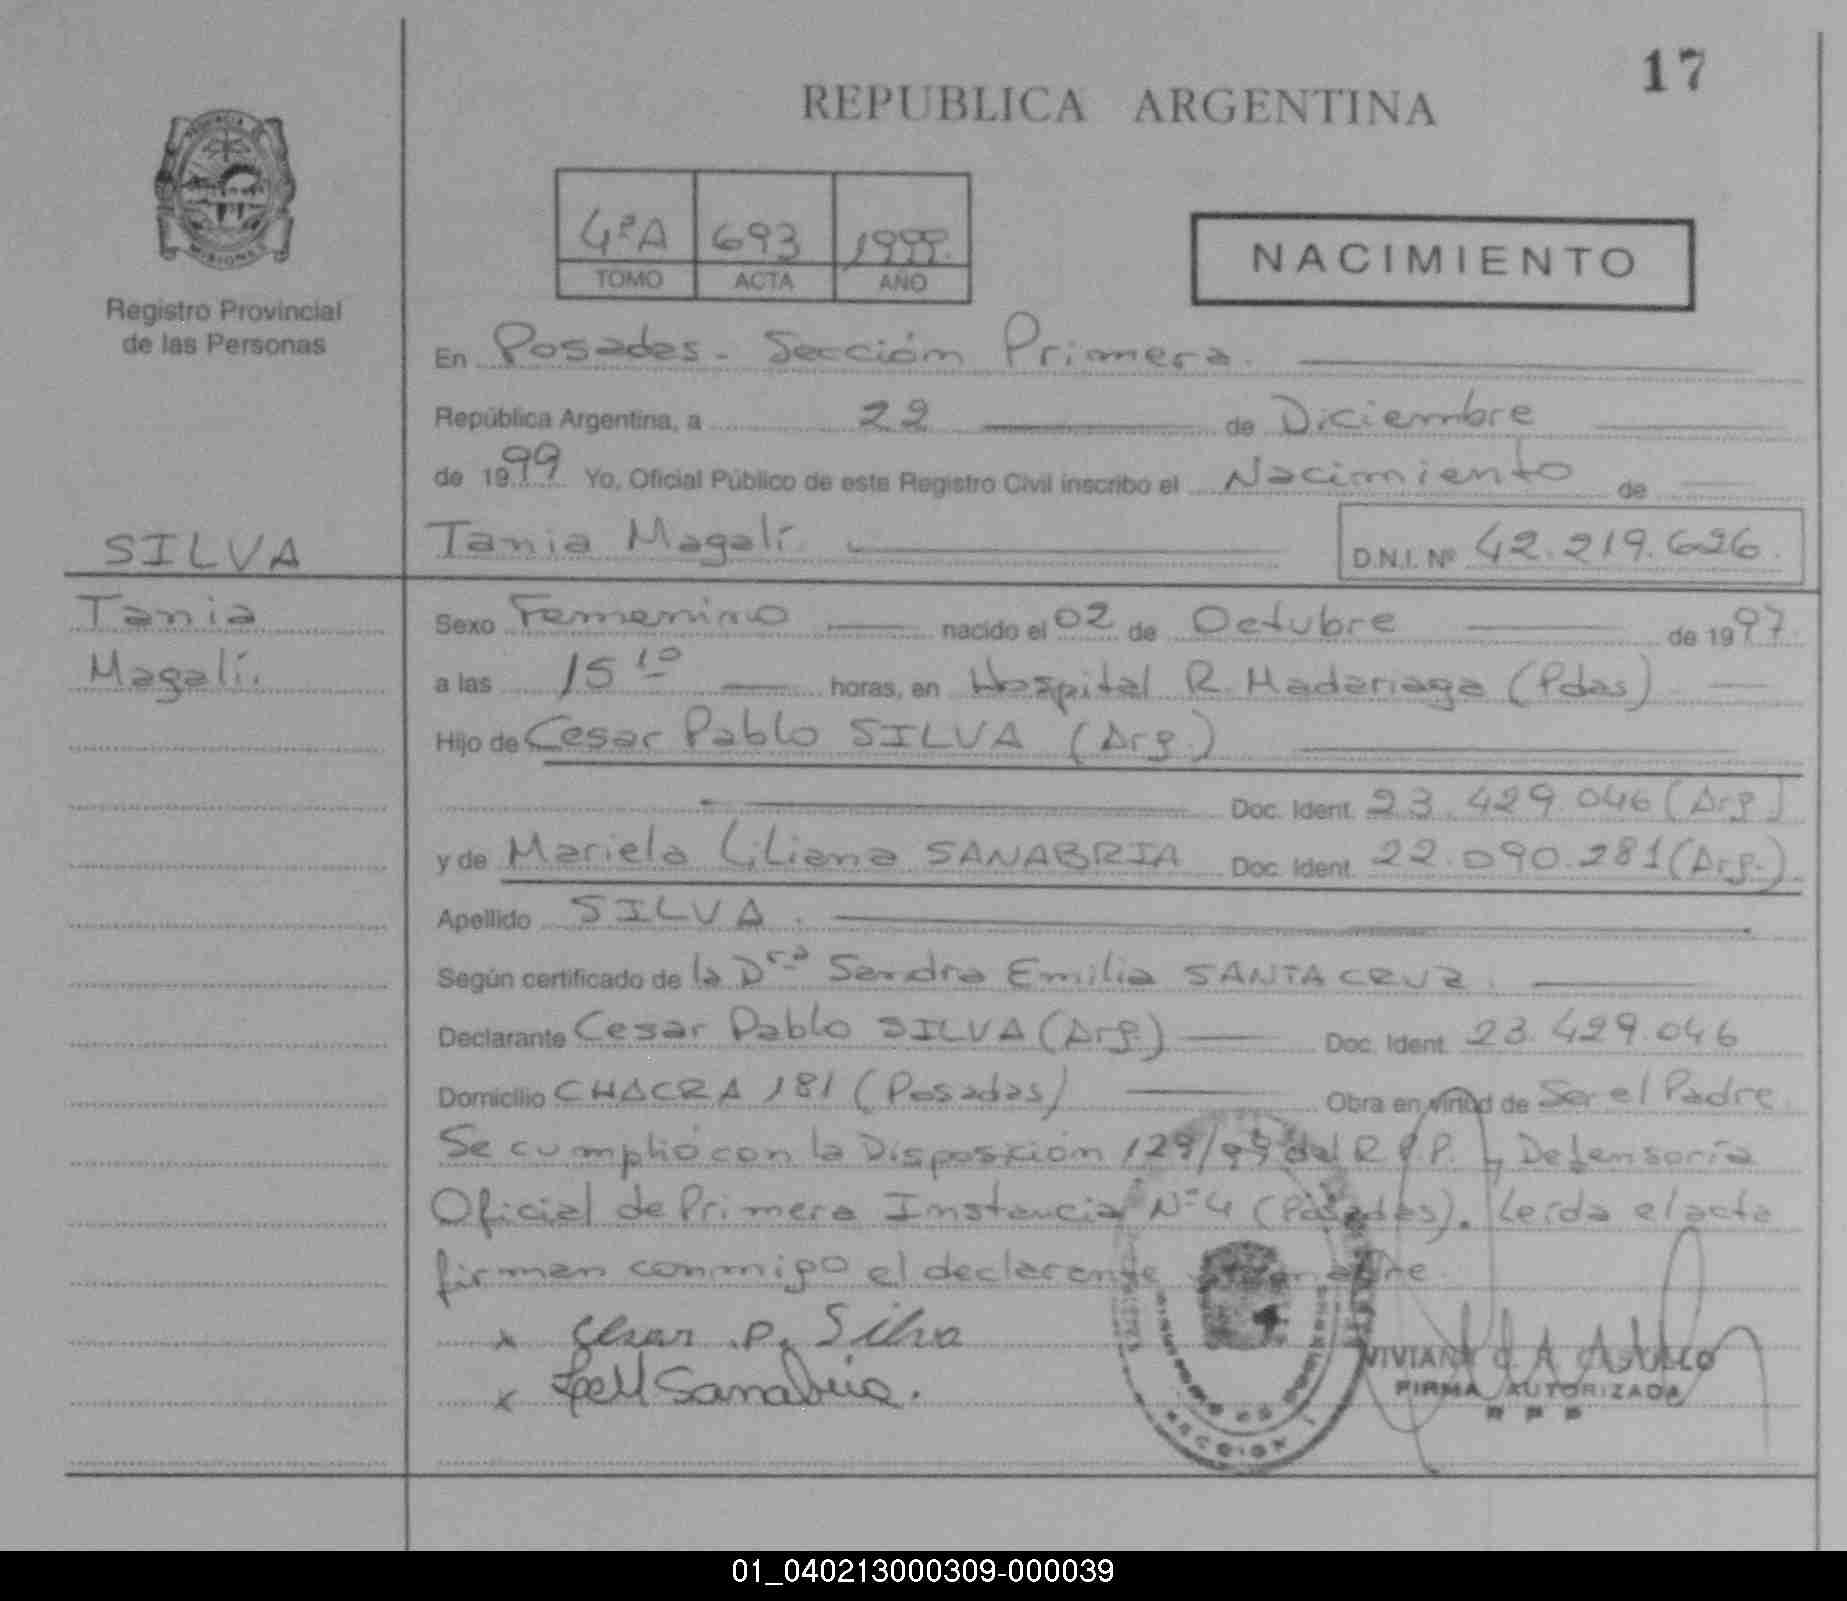 17
REPUBLICA ARGENTINA
4ºA 693 1999.
TOMO ACTA AÑO
NACIMIENTO
Registro Provincial
de las Personas
En Posadas - Sección Primera.
República Argentina, a 22 de Diciembre
de 1999 Yo, Oficial Público de este Registro Civil inscribo el Nacimiento de
SILVA
Tania Magalí. D.N.I. Nº 42.219.626.
Tania
Magalí.
Sexo Femenino nacido el 02 de Octubre de 1997.
a las 15 10 horas, en Hospital R. Madariaga (Pdas)
Hijo de Cesar Pablo SILVA (Arg.)
Doc. Ident. 23.429.046 (Arg.)
y de Mariela Liliana SANABRIA Doc. Ident. 22.090.281 (Arg.)
Apellido SILVA.
Según certificado de la Dra Sandra Emilia SANTA CRUZ.
Declarante Cesar Pablo SILVA (Arg.) Doc. Ident. 23.429.046
Domicilio CHACRA 181 (Posadas) Obra en virtud de Ser el Padre.
Se cumplió con la Disposición 129/ del R.P.P. y Defensoría
Oficial de Primera Instancia Nº 4 (Posadas). Leída el acta
firman conmigo el declarante
x Cesar P. Silva
x Sanabria.
VIVIANA A.
FIRMA AUTORIZADA
R P P
SECCION 1
01_040213000309-000039